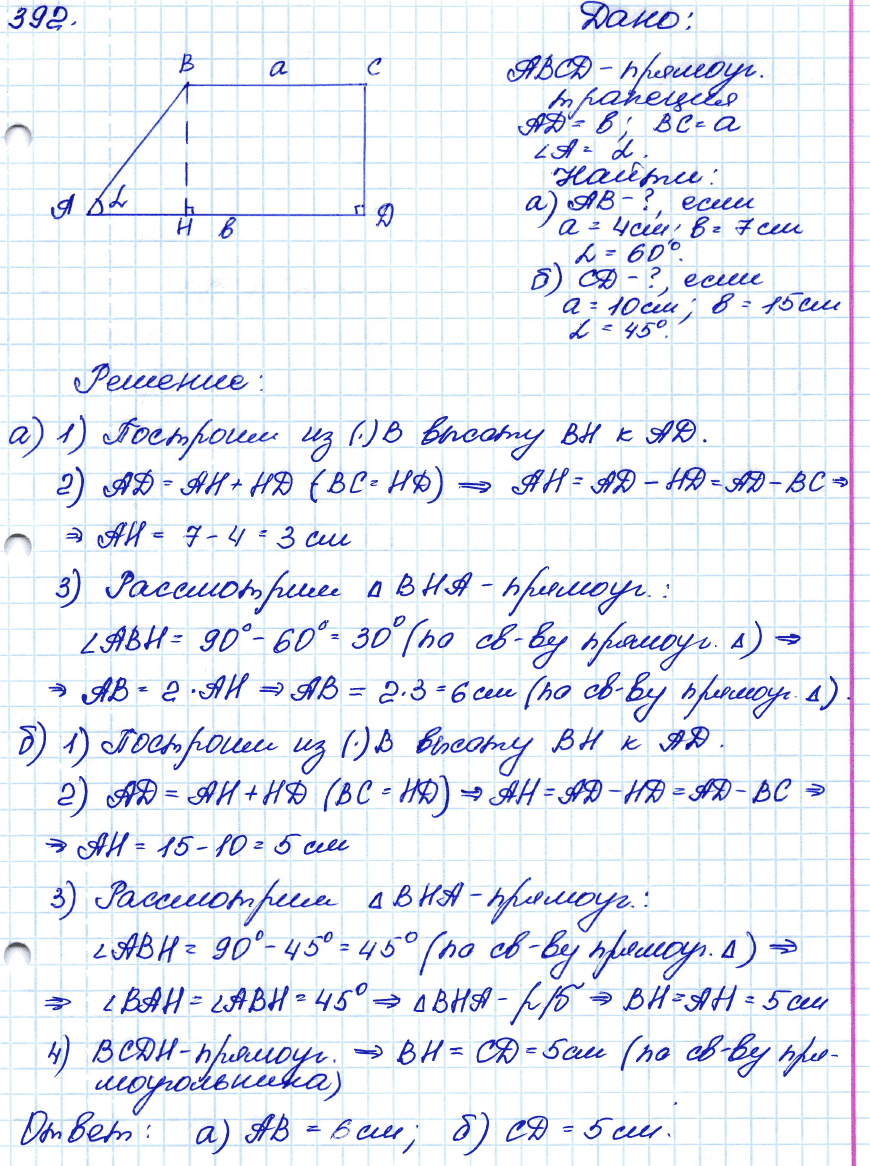 392.
Дано:
B a C
A α H в D
ABCD - прямоуг.
трапеция
AD = в; BC = a
∠A = α.
Найти:
а) AB - ?, если
a = 4см; в = 7см
α = 60°.
б) CD - ?, если
a = 10см; в = 15см
α = 45°.
Решение:
а) 1) Построим из (·)B высоту BH к AD.
2) AD = AH + HD (BC = HD) ⇒ AH = AD - HD = AD - BC ⇒
⇒ AH = 7 - 4 = 3 см
3) Рассмотрим △BHA - прямоуг.:
∠ABH = 90° - 60° = 30° (по св-ву прямоуг. △) ⇒
⇒ AB = 2 · AH ⇒ AB = 2·3 = 6 см (по св-ву прямоуг. △).
б) 1) Построим из (·)B высоту BH к AD.
2) AD = AH + HD (BC = HD) ⇒ AH = AD - HD = AD - BC ⇒
⇒ AH = 15 - 10 = 5 см
3) Рассмотрим △BHA - прямоуг.:
∠ABH = 90° - 45° = 45° (по св-ву прямоуг. △) ⇒
⇒ ∠BAH = ∠ABH = 45° ⇒ △BHA - р/б ⇒ BH = AH = 5 см
4) BCDH - прямоуг. ⇒ BH = CD = 5см (по св-ву пря-
моугольника)
Ответ: а) AB = 6 см; б) CD = 5 см.